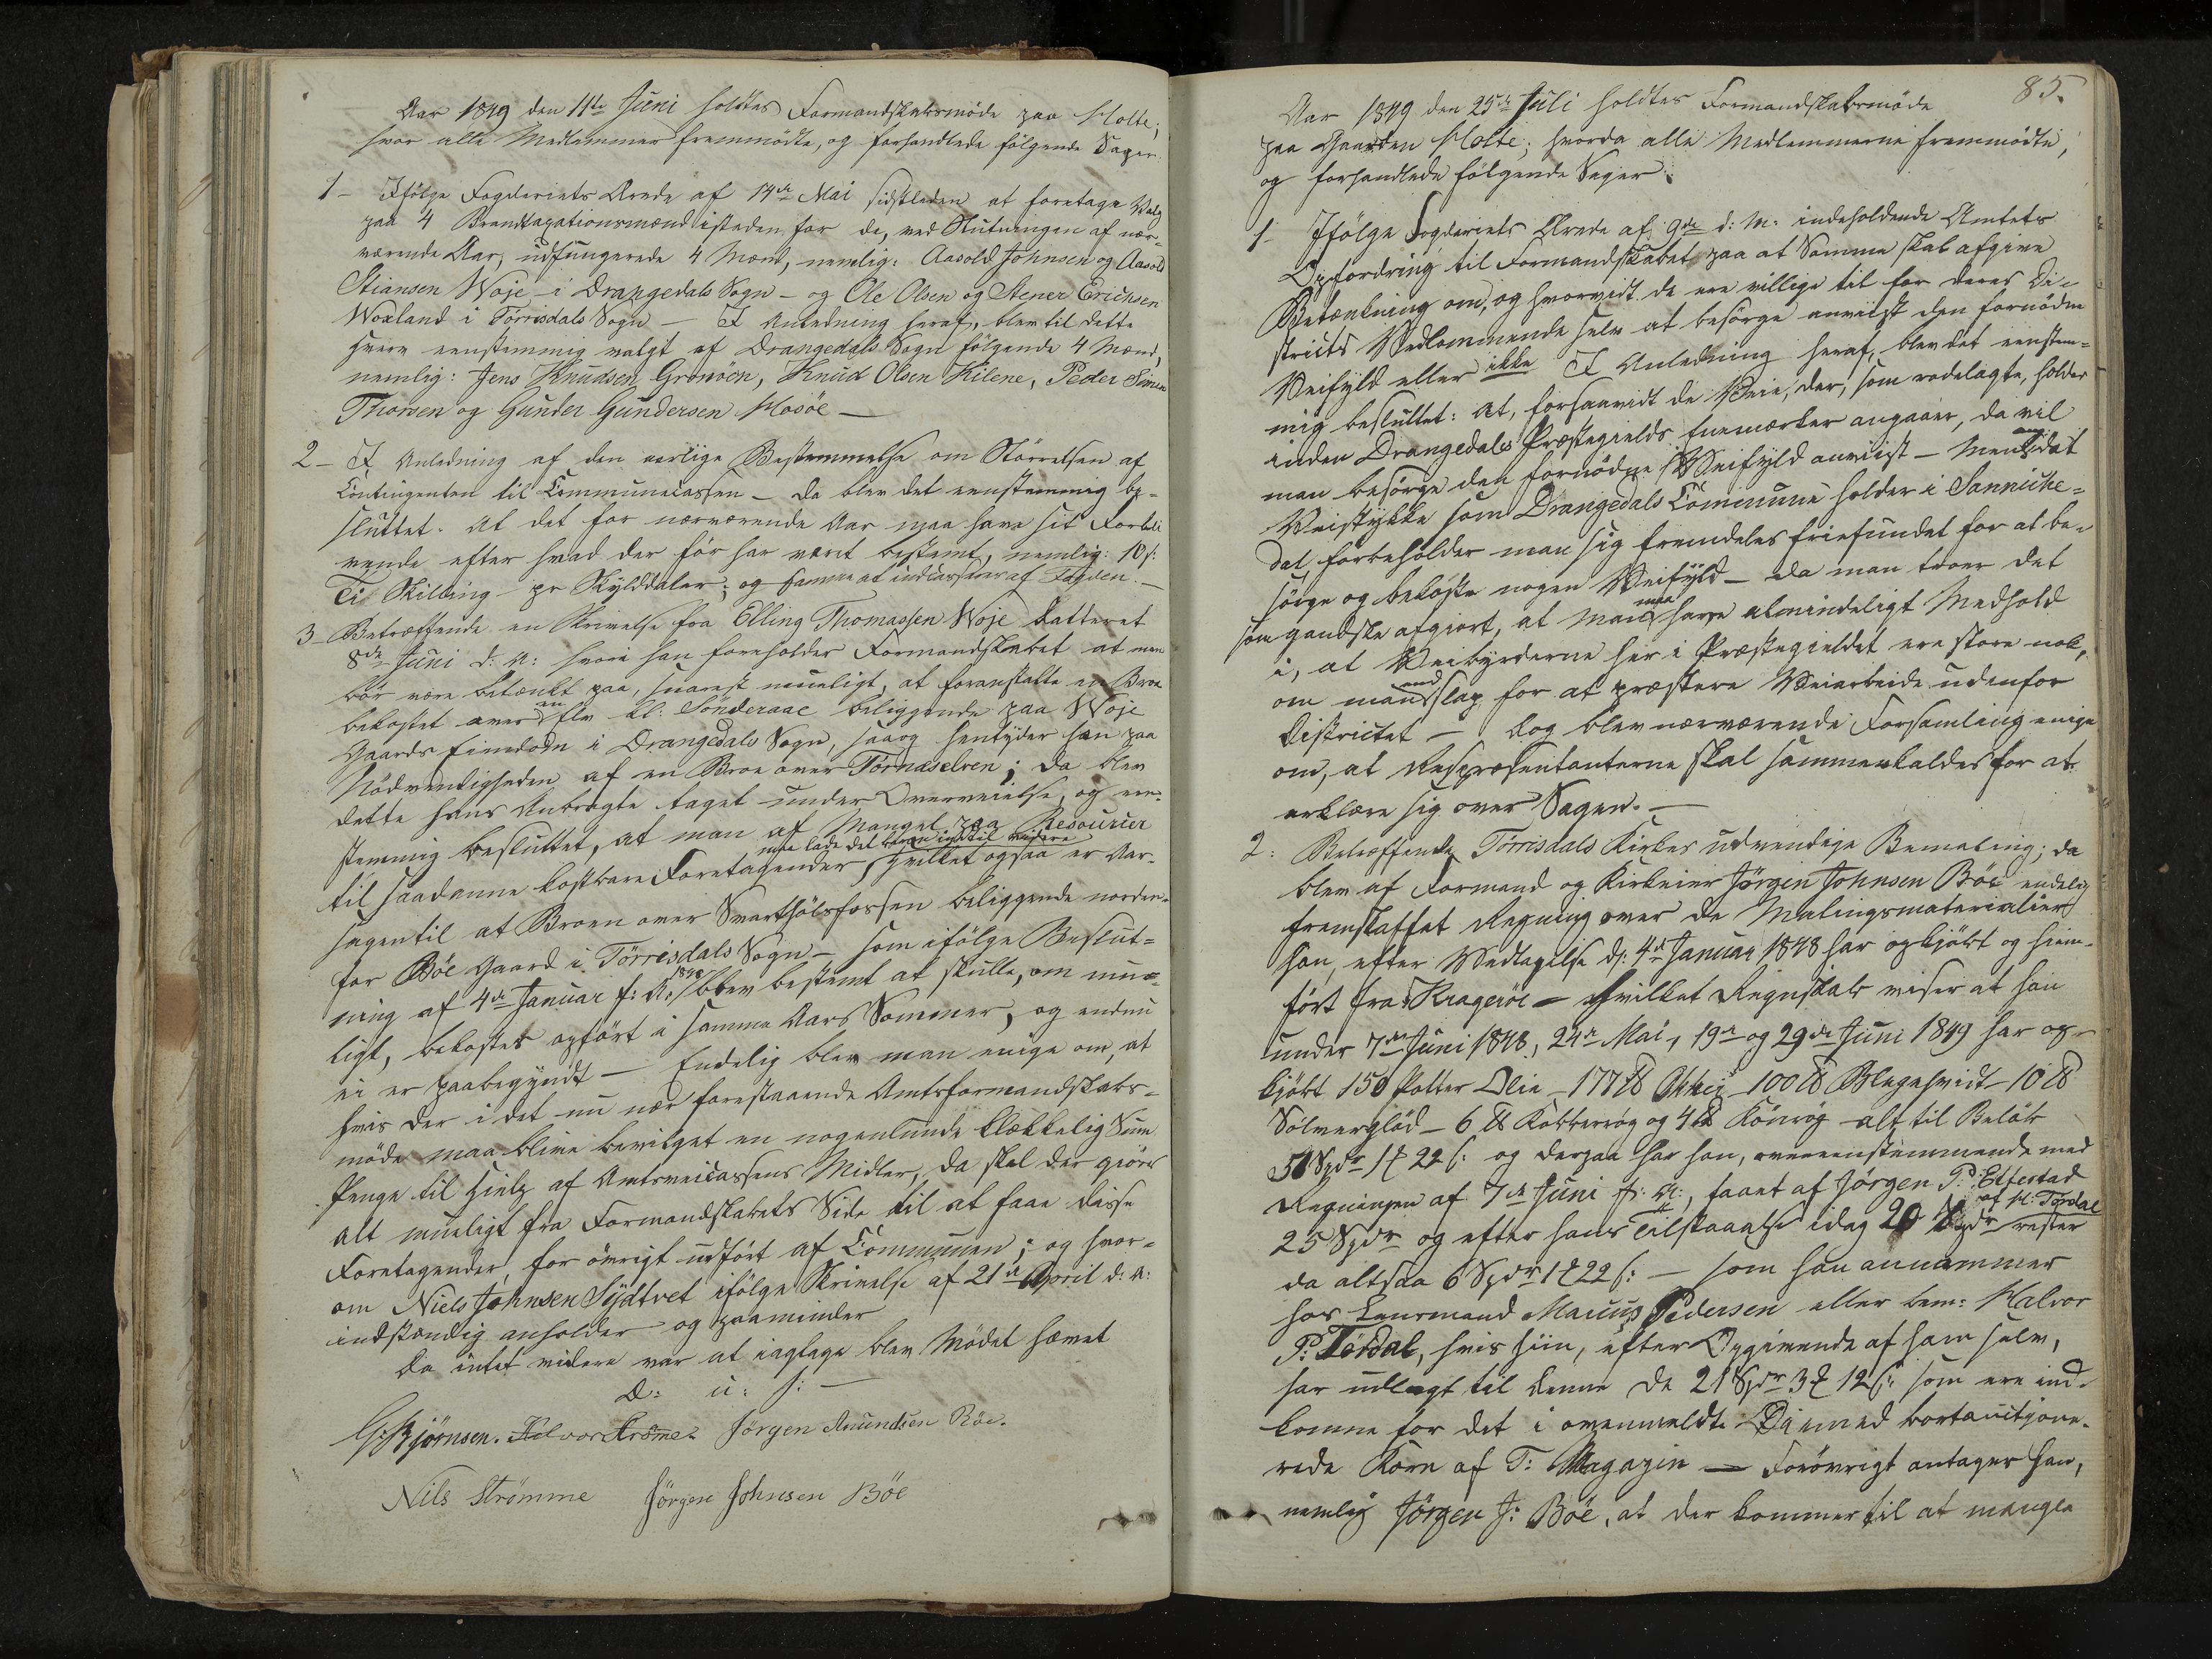 Aar 1849 den 11te Juni holdtes Formandskabsmöde paa Molte;
hvor alle Medlemmer fremmödte, og forhandlede fölgende Sager
1 - Ifölge Fogderiets Brede af 14de Mai sidstleden at foretage Valg
paa 4 Brandtaxationsmænd isteden for de, ved Slutningen af nær-
værende Aar, udfungerede 4 Mænd, nemlig: Aasold Johnsen og Aasold
Stiansen Woje - i Drangedals Sogn - og Ole Olsen og Stener Erichsen
Woxland i Törrisdals Sogn - I Anledning heraf, blev til dette
hverv eenstemmig valgt af Drangedals Sogn fölgende 4 Mænd,
nemlig: Jens Knudsen Gronoen, Knud Olsen Kilene, Peder Simen
Thorsen og Gunder Gundersen Mosöe -
2 - I Anledning af den aarlige Bestemmelse om Störrelsen af
Contingenten til Communecassen - da blev det eenstemmig be-
sluttet. At det for nærværende Aar maa have sit Forbli
vende efter hvad der för har været bestemt, nemlig: 10 s:
Ti Skilling pr Skylddaler; og samme at indcasseres af Fogden. -
3 - Betræffende en Skrivelse fra Elling Thomassen Woje datteret
8de Juni d: A: hvori han foreholder Formandskabet at man
bör være betænkt paa, snarest mueligt, at foranstalte en Broe
bekostet over en Elv kl: Sönderaae beliggende paa Woje
Gaards Eiendom i Drangedals Sogn, saaog hentyder han paa
Nödvendigheden af en Broe over Tornaselven; da blev
dette hans Andragte taget under Overveielse, og een-
stemmig besluttet, at man af Mangel paa Resourcer
maa lade det beroe indtil videre
til saadanne kostbare Foretagender, hvilket ogsaa er Aar-
sagen til at Broen over Svarthölsfossen beliggende norden-
for Böe Gaard i Törrisdals Sogn - som ifölge Beslut-
ning af 4de Januar f: A: 1848 blev bestemt at skulle, om mue-
ligt, bekostes opfört i samme Aars Sommer, og endnu
ei er paabegyndt - Endelig blev man enige om, at
hvis der i det nu nær forestaaende Amtsformandskabs-
möde maa blive bevilget en nogenlunde klækkelig Sum
Penge til Hielp af Amtsveicassens Midler, da skal der giöres
alt mueligt fra Formandskabets Side til at faae disse
Foretagender, for övrigt udfört af Communen; og hvor-
om Niels Johnsen Sydtvet ifölge Skrivelse af 21de April d: A:
indstændig anholder og paaminder
Da intet videre var at iagtage blev Mödet hævet
D: u: s: -
G Björnsen. Halvor Strömme. Jörgen Amundsen Böe.
Nils Strømme Jörgen Johnsen Böe
85.
Aar 1849 den 25de Juli holdtes Formandskabsmöde
paa Gaarden Molte; hvorda alle Medlemmerne fremmödte,
og forhandlede fölgende Sager:
1 - Ifölge Fogderiets Brede af 9de d: M: indeholdende Amtets
Opfordring til Formandskabet paa at Samme skal afgive
Betænkning om, og hvorvidt de ere villige til for deres Di-
stricts Vedkommende selv at besörge anviist den fornödne
Veifyld eller ikke I Anledning heraf, blev det eenstem-
mig besluttet: At, forsaavidt de Veie, der, som rodelagte, holdes
inden Drangedals Præstegields Enemærker angaaer, da vil
man besörge den fornödne Veifyld anviist - Men ang. det
Veistykke som Drangedals Commune holder i Sanniche-
dal forbeholder man sig fremdeles friefundet for at be-
sörge og bekoste nogen Veifyld - da man troer det
som gandske afgiort, at man maa have almindeligt Medhold
i, at Veibyrderne her i Præstegieldet ere store nok,
om man end slap for at præstere Veiarbeide udenfor
Districtet - Dog blev nærværende Forsamling enige
om, at Repræsentanterne skal sammenkaldes for at
erklære sig over Sagen. -
2: Betræffende Törrisdals Kirkes udvendige Bemaling; da
blev af Formand og Kirkeier Jörgen Johnsen Böe endelig
fremskaffet Regning over de Malingsmaterialier
han, efter Vedtagelse d: 4de Januar 1848 har opkjöbt og hiem-
fört fra Krageröe - hvilket Regnskab viser at han
under 7de Juni 1848, 24de Mai, 19de og 29de Juni 1849 har op-
kjöbt 150 Potter Olie - 177 ℔ Okker - 100 ℔ Blegehvidt - 10 ℔
Sölverglöd - 6 ℔ Kobberrög og 4 ℔ Könrög - alt til Beløb
51 Spdr 1 ꝑ 22 s: og derpaa har han, overeenstemmende med
Regningen af 7de Juni f: A:, faaet af Jörgen P: Eltestad
25 Spdr og efter hans Tilstaaelse idag 20 Spdr af H: Tørdal rester
da altsaa 6 Spdr 1 ꝑ 22 s: - som han annammer
hos Lensmand Marcus Pedersen eller bem: Halvor
P: Tördal, hvis hiin, efter Opgivende af ham selv,
har udlagt til denne de 21 Spdr 3 ꝑ 12 s: som ere ind-
komne for det i ovenmeldte Öiemed bortauctjone-
rede Korn af T: Magazin - Forövrigt antager han,
nemlig Jörgen J: Böe, at der kommer til at mangle